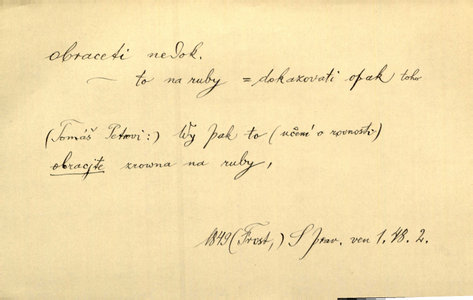 obraceti nedok.
— to na ruby = dokazovati opak toho
(Tomáš Petrovi:) Wy pak to (učení o rovnosti)
obracejte zrowna na ruby,
1849 (Frost,) S prav. ven 1. 48. 2.